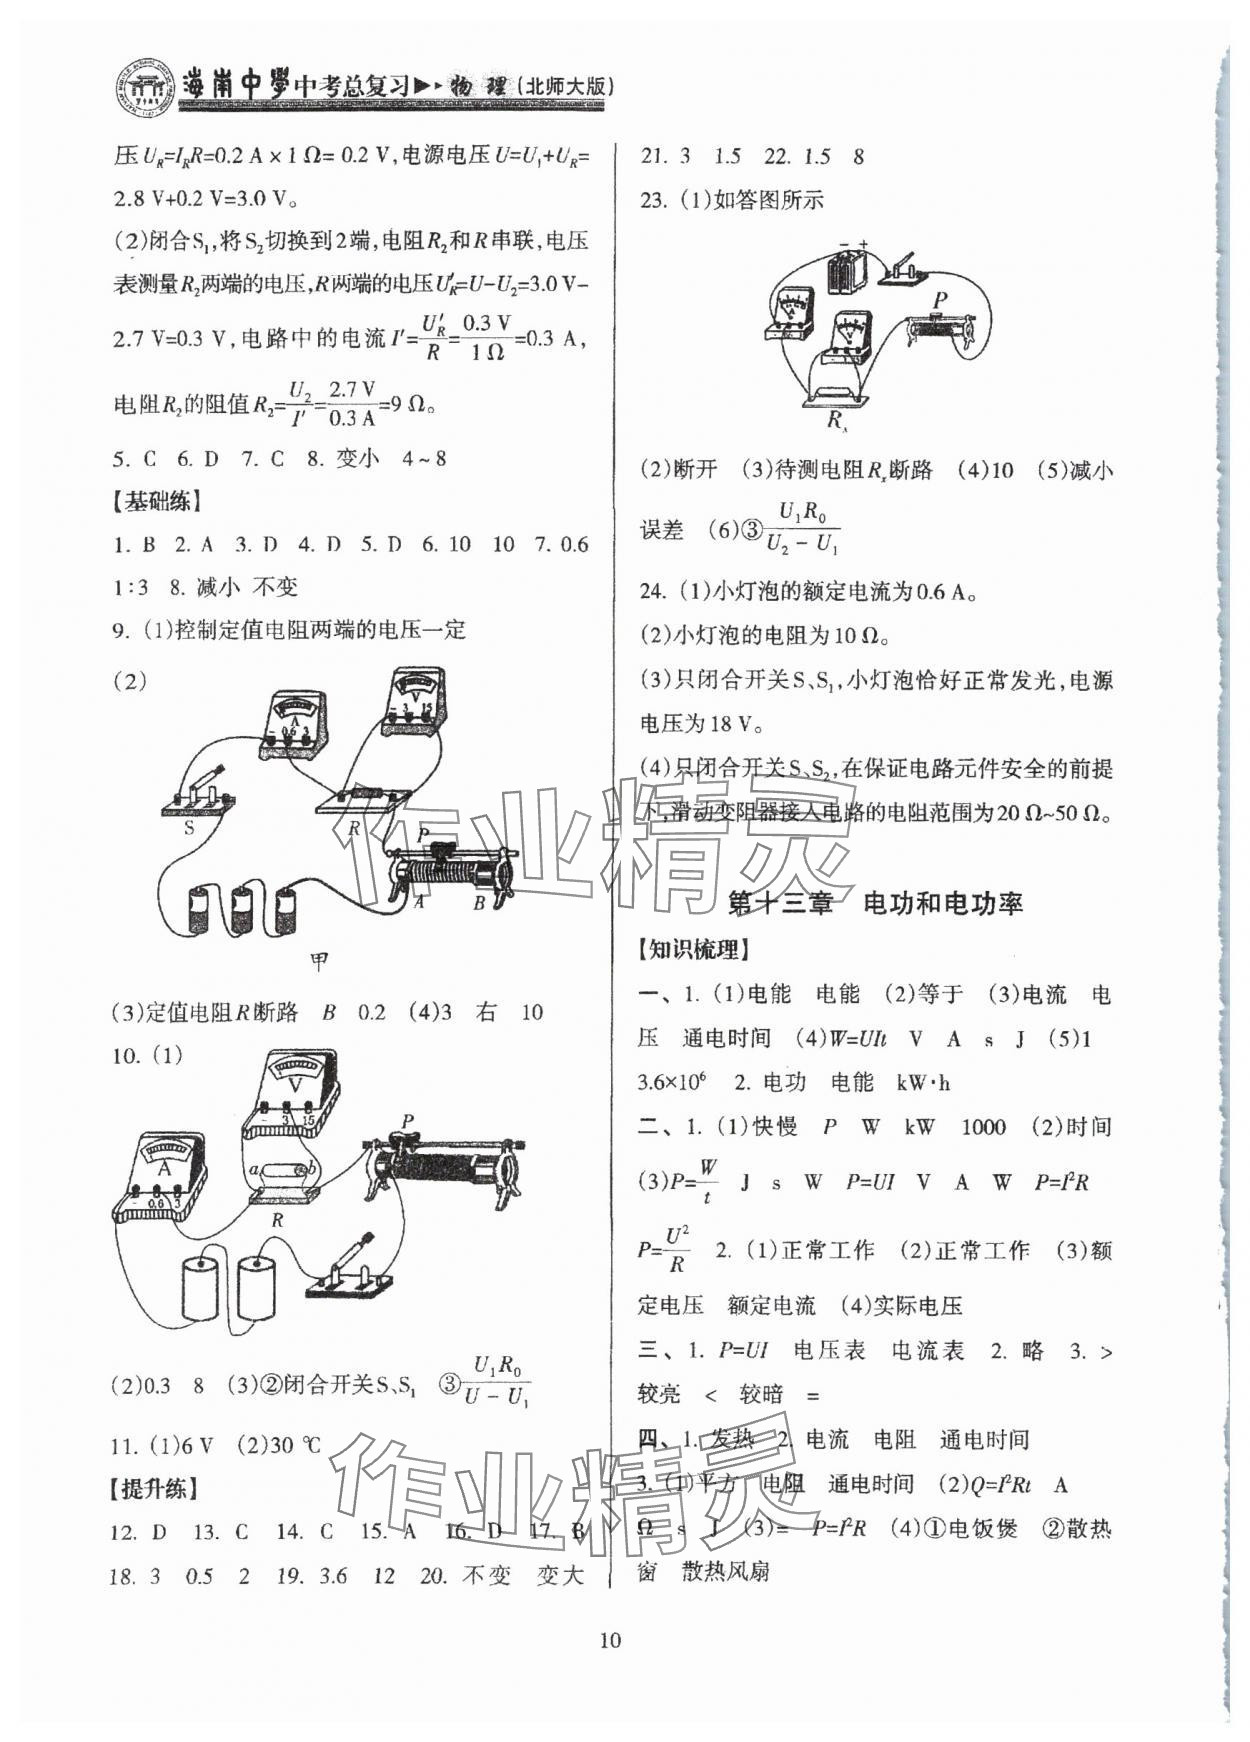 海南中学中考总复习▶▸物理(北师大版)
压U_R=I_R R=0.2 A×1 Ω=0.2 V,电源电压U=U₁+U_R=
2.8 V+0.2 V=3.0 V。
(2)闭合S₁,将S₂切换到2端,电阻R₂和R串联,电压
表测量R₂两端的电压,R两端的电压U′_R=U-U₂=3.0 V-
2.7 V=0.3 V,电路中的电流I′=U′_R/R=0.3 V/1 Ω=0.3 A,
电阻R₂的阻值R₂=U₂/I′=2.7 V/0.3 A=9 Ω。
5. C 6. D 7. C 8. 变小 4~8
【基础练】
1. B 2. A 3. D 4. D 5. D 6. 10 10 7. 0.6
1∶3 8. 减小 不变
9. (1)控制定值电阻两端的电压一定
(2)
A
- 0.6 3
V
- 3 15
S
R
P
A
B
甲
(3)定值电阻R断路 B 0.2 (4)3 右 10
10. (1)
V
- 3 15
A
- 0.6 3
a
b
R
P
(2)0.3 8 (3)②闭合开关S、S₁ ③U₁R₀/(U-U₁)
11. (1)6 V (2)30 ℃
【提升练】
12. D 13. C 14. C 15. A 16. D 17. B
18. 3 0.5 2 19. 3.6 12 20. 不变 变大
21. 3 1.5 22. 1.5 8
23. (1)如答图所示
- +
A
V
P
Rₓ
(2)断开 (3)待测电阻Rₓ断路 (4)10 (5)减小
误差 (6)③U₁R₀/(U₂-U₁)
24. (1)小灯泡的额定电流为0.6 A。
(2)小灯泡的电阻为10 Ω。
(3)只闭合开关S、S₁,小灯泡恰好正常发光,电源
电压为18 V。
(4)只闭合开关S、S₂,在保证电路元件安全的前提
下,滑动变阻器接入电路的电阻范围为20 Ω~50 Ω。
第十三章 电功和电功率
【知识梳理】
一、1. (1)电能 电能 (2)等于 (3)电流 电
压 通电时间 (4)W=UIt V A s J (5)1
3.6×10⁶ 2. 电功 电能 kW·h
二、1. (1)快慢 P W kW 1000 (2)时间
(3)P=W/t J s W P=UI V A W P=I²R
P=U²/R 2. (1)正常工作 (2)正常工作 (3)额
定电压 额定电流 (4)实际电压
三、1. P=UI 电压表 电流表 2. 略 3. >
较亮 < 较暗 =
四、1. 发热 2. 电流 电阻 通电时间
3. (1)平方 电阻 通电时间 (2)Q=I²Rt A
Ω s J (3)= P=I²R (4)①电饭煲 ②散热
窗 散热风扇
作业精灵
作业精灵
10